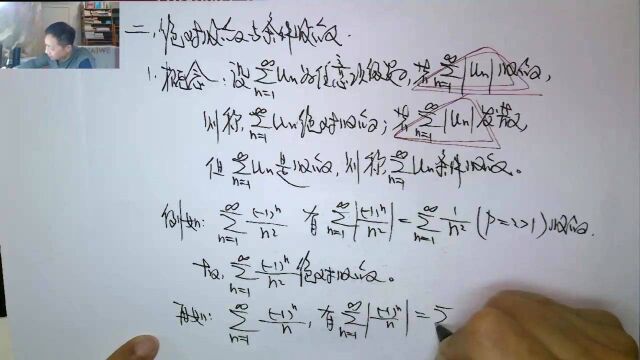 二、绝对收敛与条件收敛.
1. 概念: 设 ∑_{n=1}^{∞} u_n 为任意项级数, 若 ∑_{n=1}^{∞} |u_n| 收敛,
则称 ∑_{n=1}^{∞} u_n 绝对收敛; 若 ∑_{n=1}^{∞} |u_n| 发散
但 ∑_{n=1}^{∞} u_n 收敛, 则称 ∑_{n=1}^{∞} u_n 条件收敛。
例如: ∑_{n=1}^{∞} (-1)^n/n² 有 ∑_{n=1}^{∞} |(-1)^n/n²| = ∑_{n=1}^{∞} 1/n² (P=2>1) 收敛.
故, ∑_{n=1}^{∞} (-1)^n/n² 绝对收敛。
再如: ∑_{n=1}^{∞} (-1)^n/n, 有 ∑_{n=1}^{∞} |(-1)^n/n| =